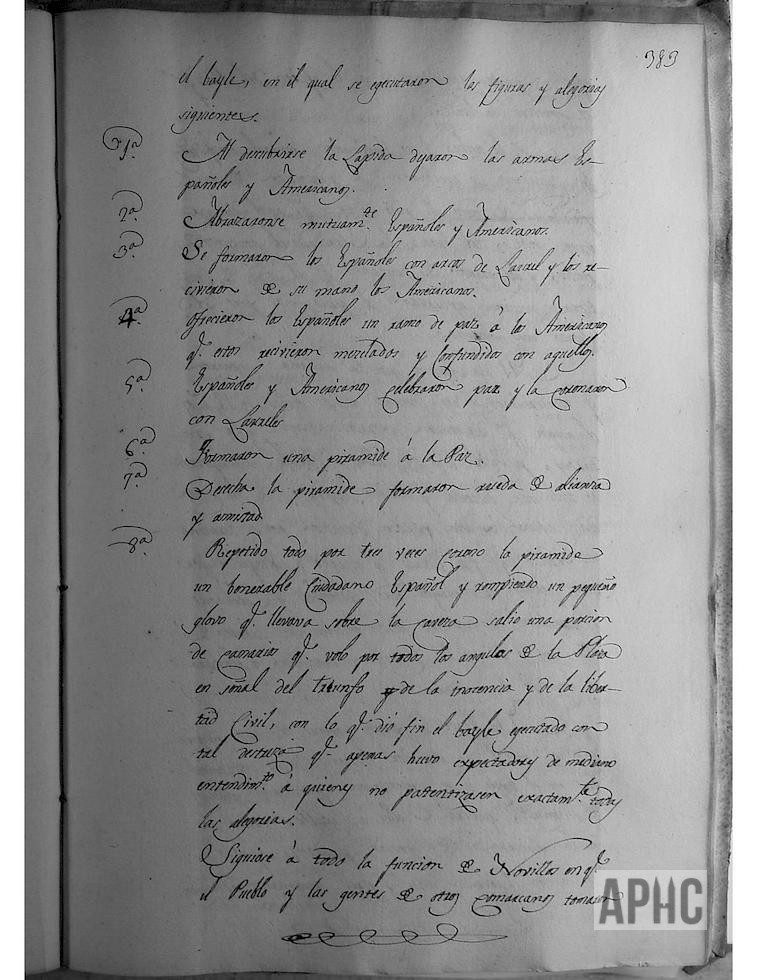 383
el bayle, en el qual se egecutaron las figuras y alegorias
siguientes.
1ª Al descubrirse la Lapida dejaron las armas Es-
pañoles y Americanos.
2ª Abrazaronse mutuam.te Españoles y Americanos.
3ª Se formaron los Españoles con arcos de Laurel y los re-
civieron de su mano los Americanos.
4ª Ofrecieron los Españoles un ramo de paz á los Americanos
q.e estos recivieron mezclados y confundidos con aquellos.
5ª Españoles y Americanos celebraron paz y la coronaron
con Laureles
6ª Formaron una piramide á la Paz.
7ª Derecha la piramide formaron rueda de alianza
y amistad
8ª Repetido todo por tres veces corono la piramide
un benerable Ciudadano Español y rompiendo un pequeño
glovo q.e llevava sobre la caveza salio una porcion
de canarios q.e volo por todos los angulos de la Plaza
en señal del triunfo de la inocencia y de la liber-
tad Civil, con lo q.e dió fin el bayle egecutado con
tal destreza q.e apenas huvo expectadores de mediano
entendim.to á quienes no patentizasen exactam.te todas
las alegorias.
Siguiose á todo la funcion de Novillos en q.e
el Pueblo y las gentes de otros comarcanos tomaron
APHC